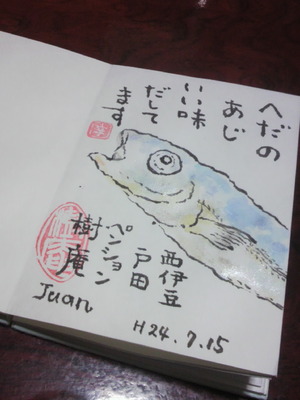 へだの
あじ
いい味
だして
ます
西伊豆
戸田
ペンション
樹庵
Juan
H24.7.15